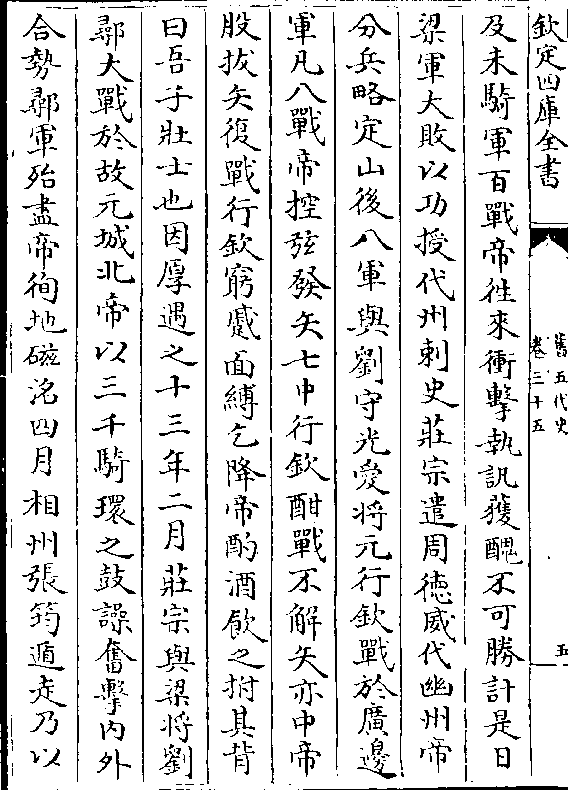 欽定四庫全書
舊五代史
卷三十五
五
及未騎軍百戰帝徃來衝擊執訊獲醜不可勝計是日
梁軍大敗以功授代州刺史莊宗遣周徳威伐幽州帝
分兵略定山後八軍與劉守光愛將元行欽戰於廣邊
軍凡八戰帝控弦發矢七中行欽酣戰不解矢亦中帝
股拔矢復戰行欽窮蹙面縛乞降帝酌酒飲之拊其背
曰吾子壯士也因厚遇之十三年二月莊宗與梁將劉
鄩大戰於故元城北帝以三千騎環之鼓譟奮擊内外
合勢鄩軍殆盡帝徇地磁洺四月相州張筠遁走乃以